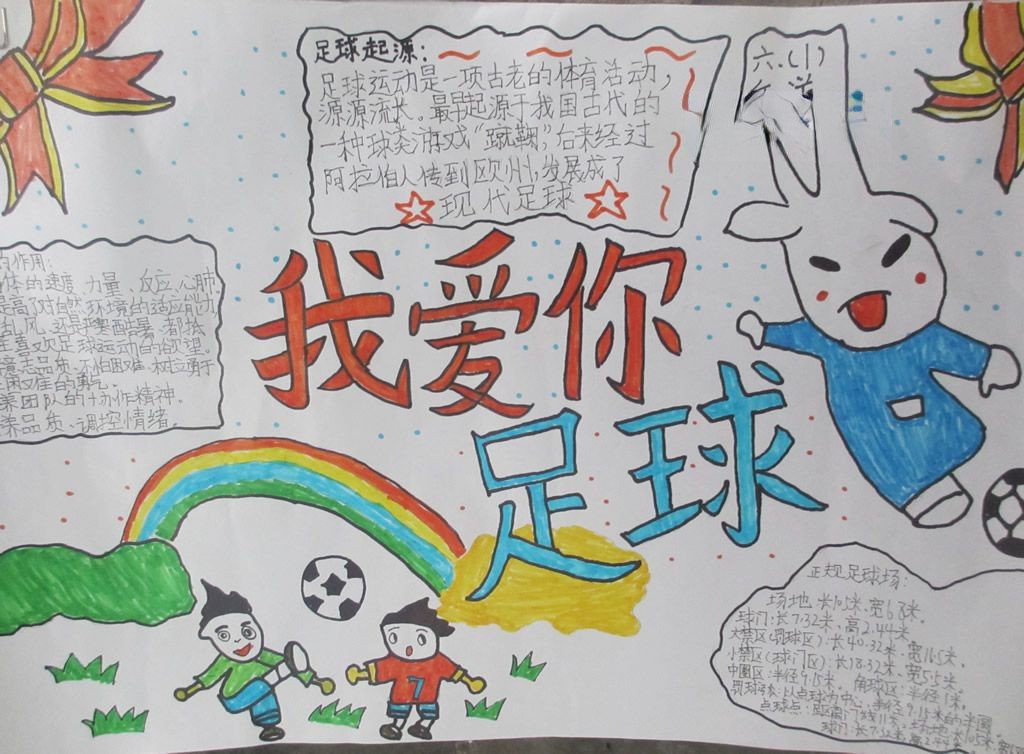 足球起源:
足球运动是一项古老的体育活动,
源源流长。最早起源于我国古代的
一种球类游戏“蹴鞠”,后来经过
阿拉伯人传到欧州,发展成了
现代足球
六.(1)
的作用:
体的速度、力量、反应、心肺
是高了对自然环境的适应能力
喜欢足球运动的欲望。
意志品质、不怕困难、
困难的勇气。
养团队的协作精神。
品质、调控情绪。
我爱你
足球
7
正规足球场:
场地:长105米、宽68米.
球门:长7.32米、高2.44米
大禁区(罚球区):长40.32米、宽16.5米.
小禁区(球门区):长18.32米、宽5.5米
中圈区:半径9.15米、角球区:半径1米.
罚球弧:以点球为中心,半径9.15米的半圆
点球点:
球门:长7.32